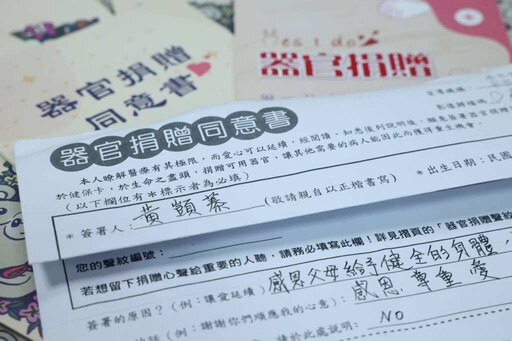 器官捐贈
同意書
Yes I do
器官捐贈
器官捐贈同意書
本人瞭解醫療有其極限，而愛心可以延續，經閱讀、知悉後列說明後，願意簽署器官捐贈
於健保卡，於生命之盡頭，捐贈可用器官，讓其他需要的病人能因此而獲得重生機會。
（以下欄位有＊標示者為必填）
＊簽署人：黃顗蓁（敬請親自以正楷書寫） ＊出生日期：民國
您的聲紋編號：
若想留下捐贈心聲給重要的人聽，請務必填寫此欄！詳見摺頁的「器官捐贈聲紋
簽署的原因？（例：讓愛延續）感恩父母給予健全的身體，
（例：謝謝你們順應我的心意）：感恩 尊重 愛
請於此處說明： NO